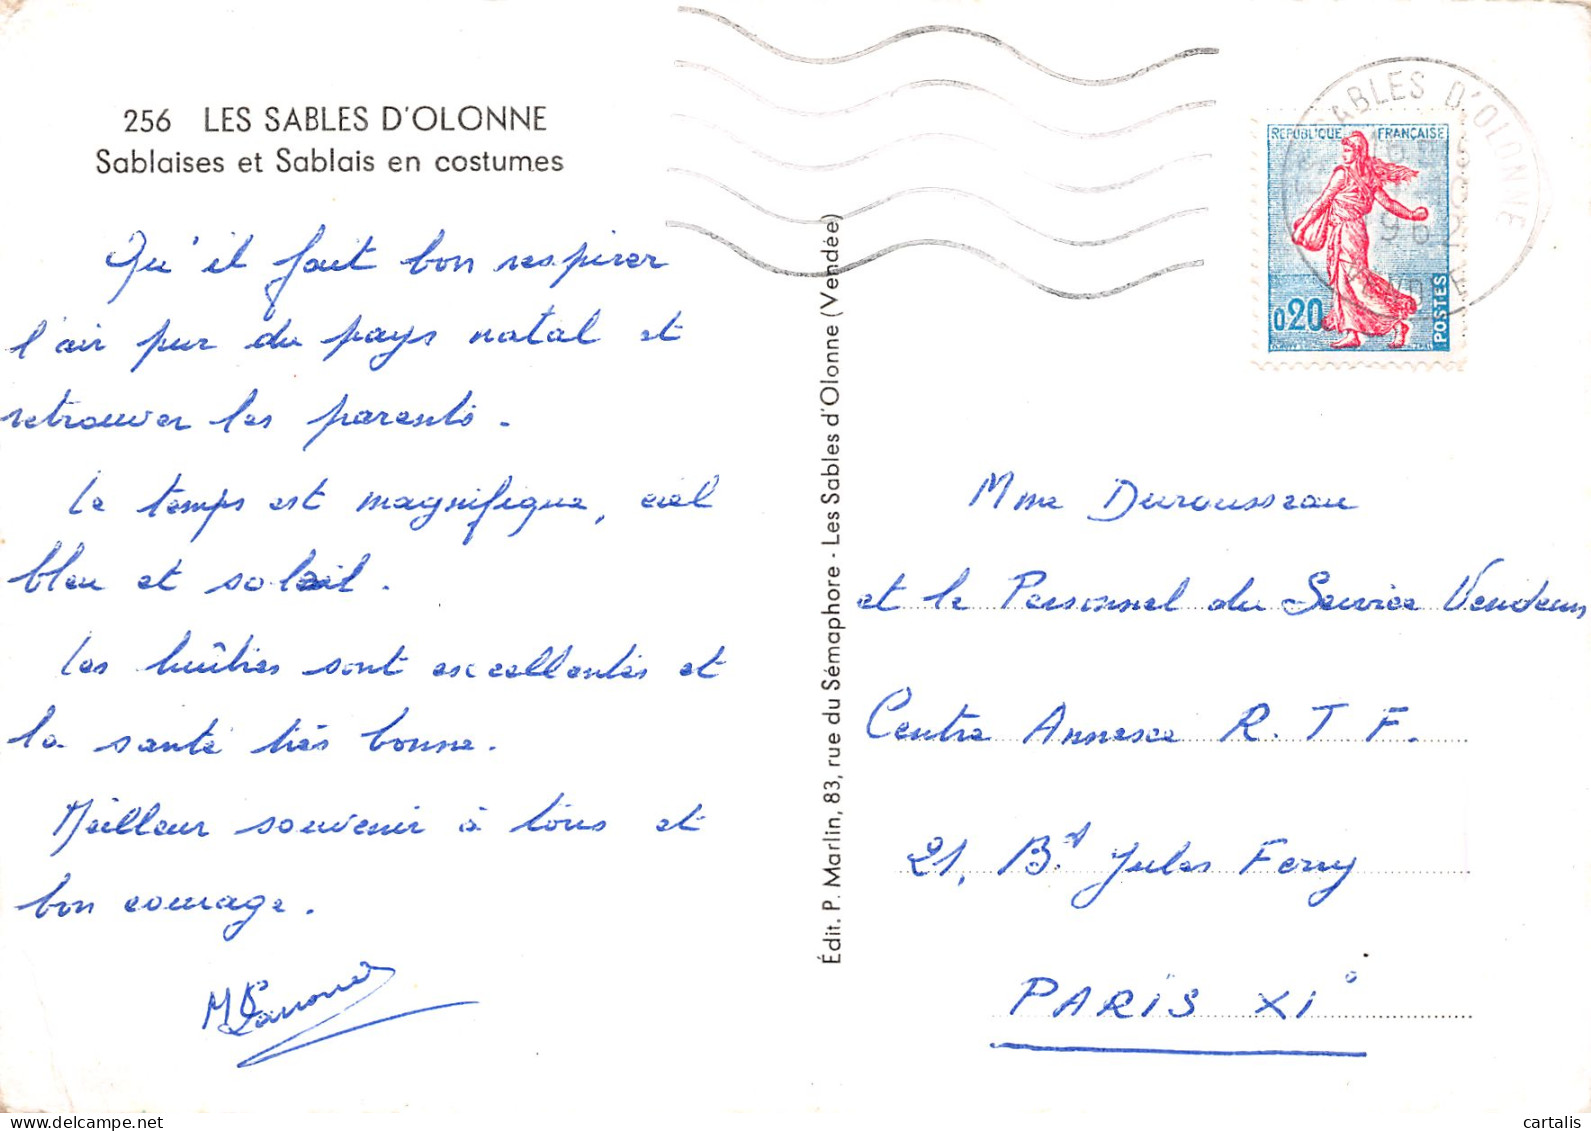 256 LES SABLES D'OLONNE
Sablaises et Sablais en costumes
Qu'il fait bon respirer
l'air pur du pays natal et
retrouver les parents.
Le temps est magnifique, ciel
bleu et soleil.
Les huîtres sont excellentes et
la santé très bonne.
Meilleur souvenir à tous et
bon courage.
Édit. P. Marlin, 83, rue du Sémaphore - Les Sables d'Olonne (Vendée)
SABLES D'OLONNE
REPUBLIQUE FRANÇAISE
0,20
POSTES
Mme Durousseau
et le Personnel du Service Vendeurs
Centre Annexe R.T.F.
21, Bd Jules Ferry
PARIS XI°
delcampe.net
cartalis